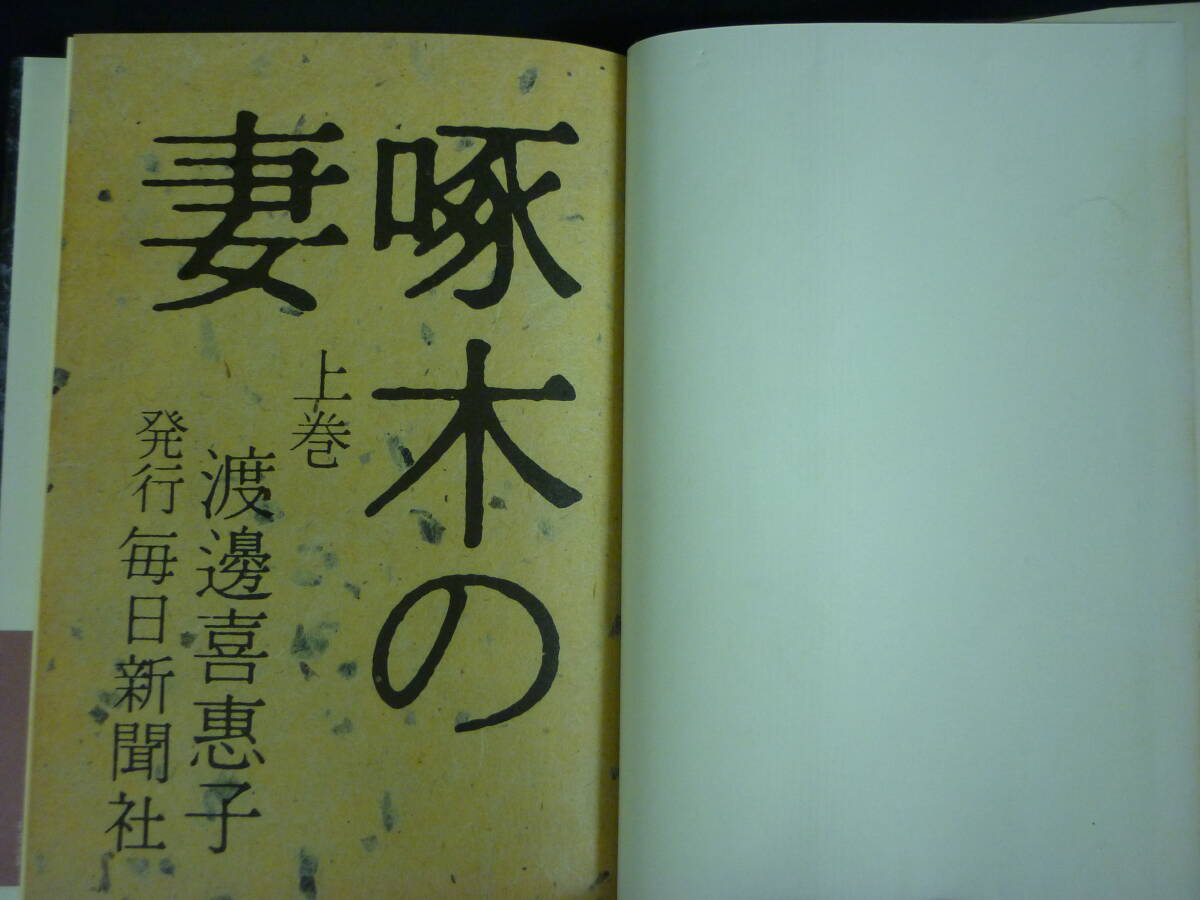 啄木の
妻
上巻
渡邊喜惠子
発行 毎日新聞社